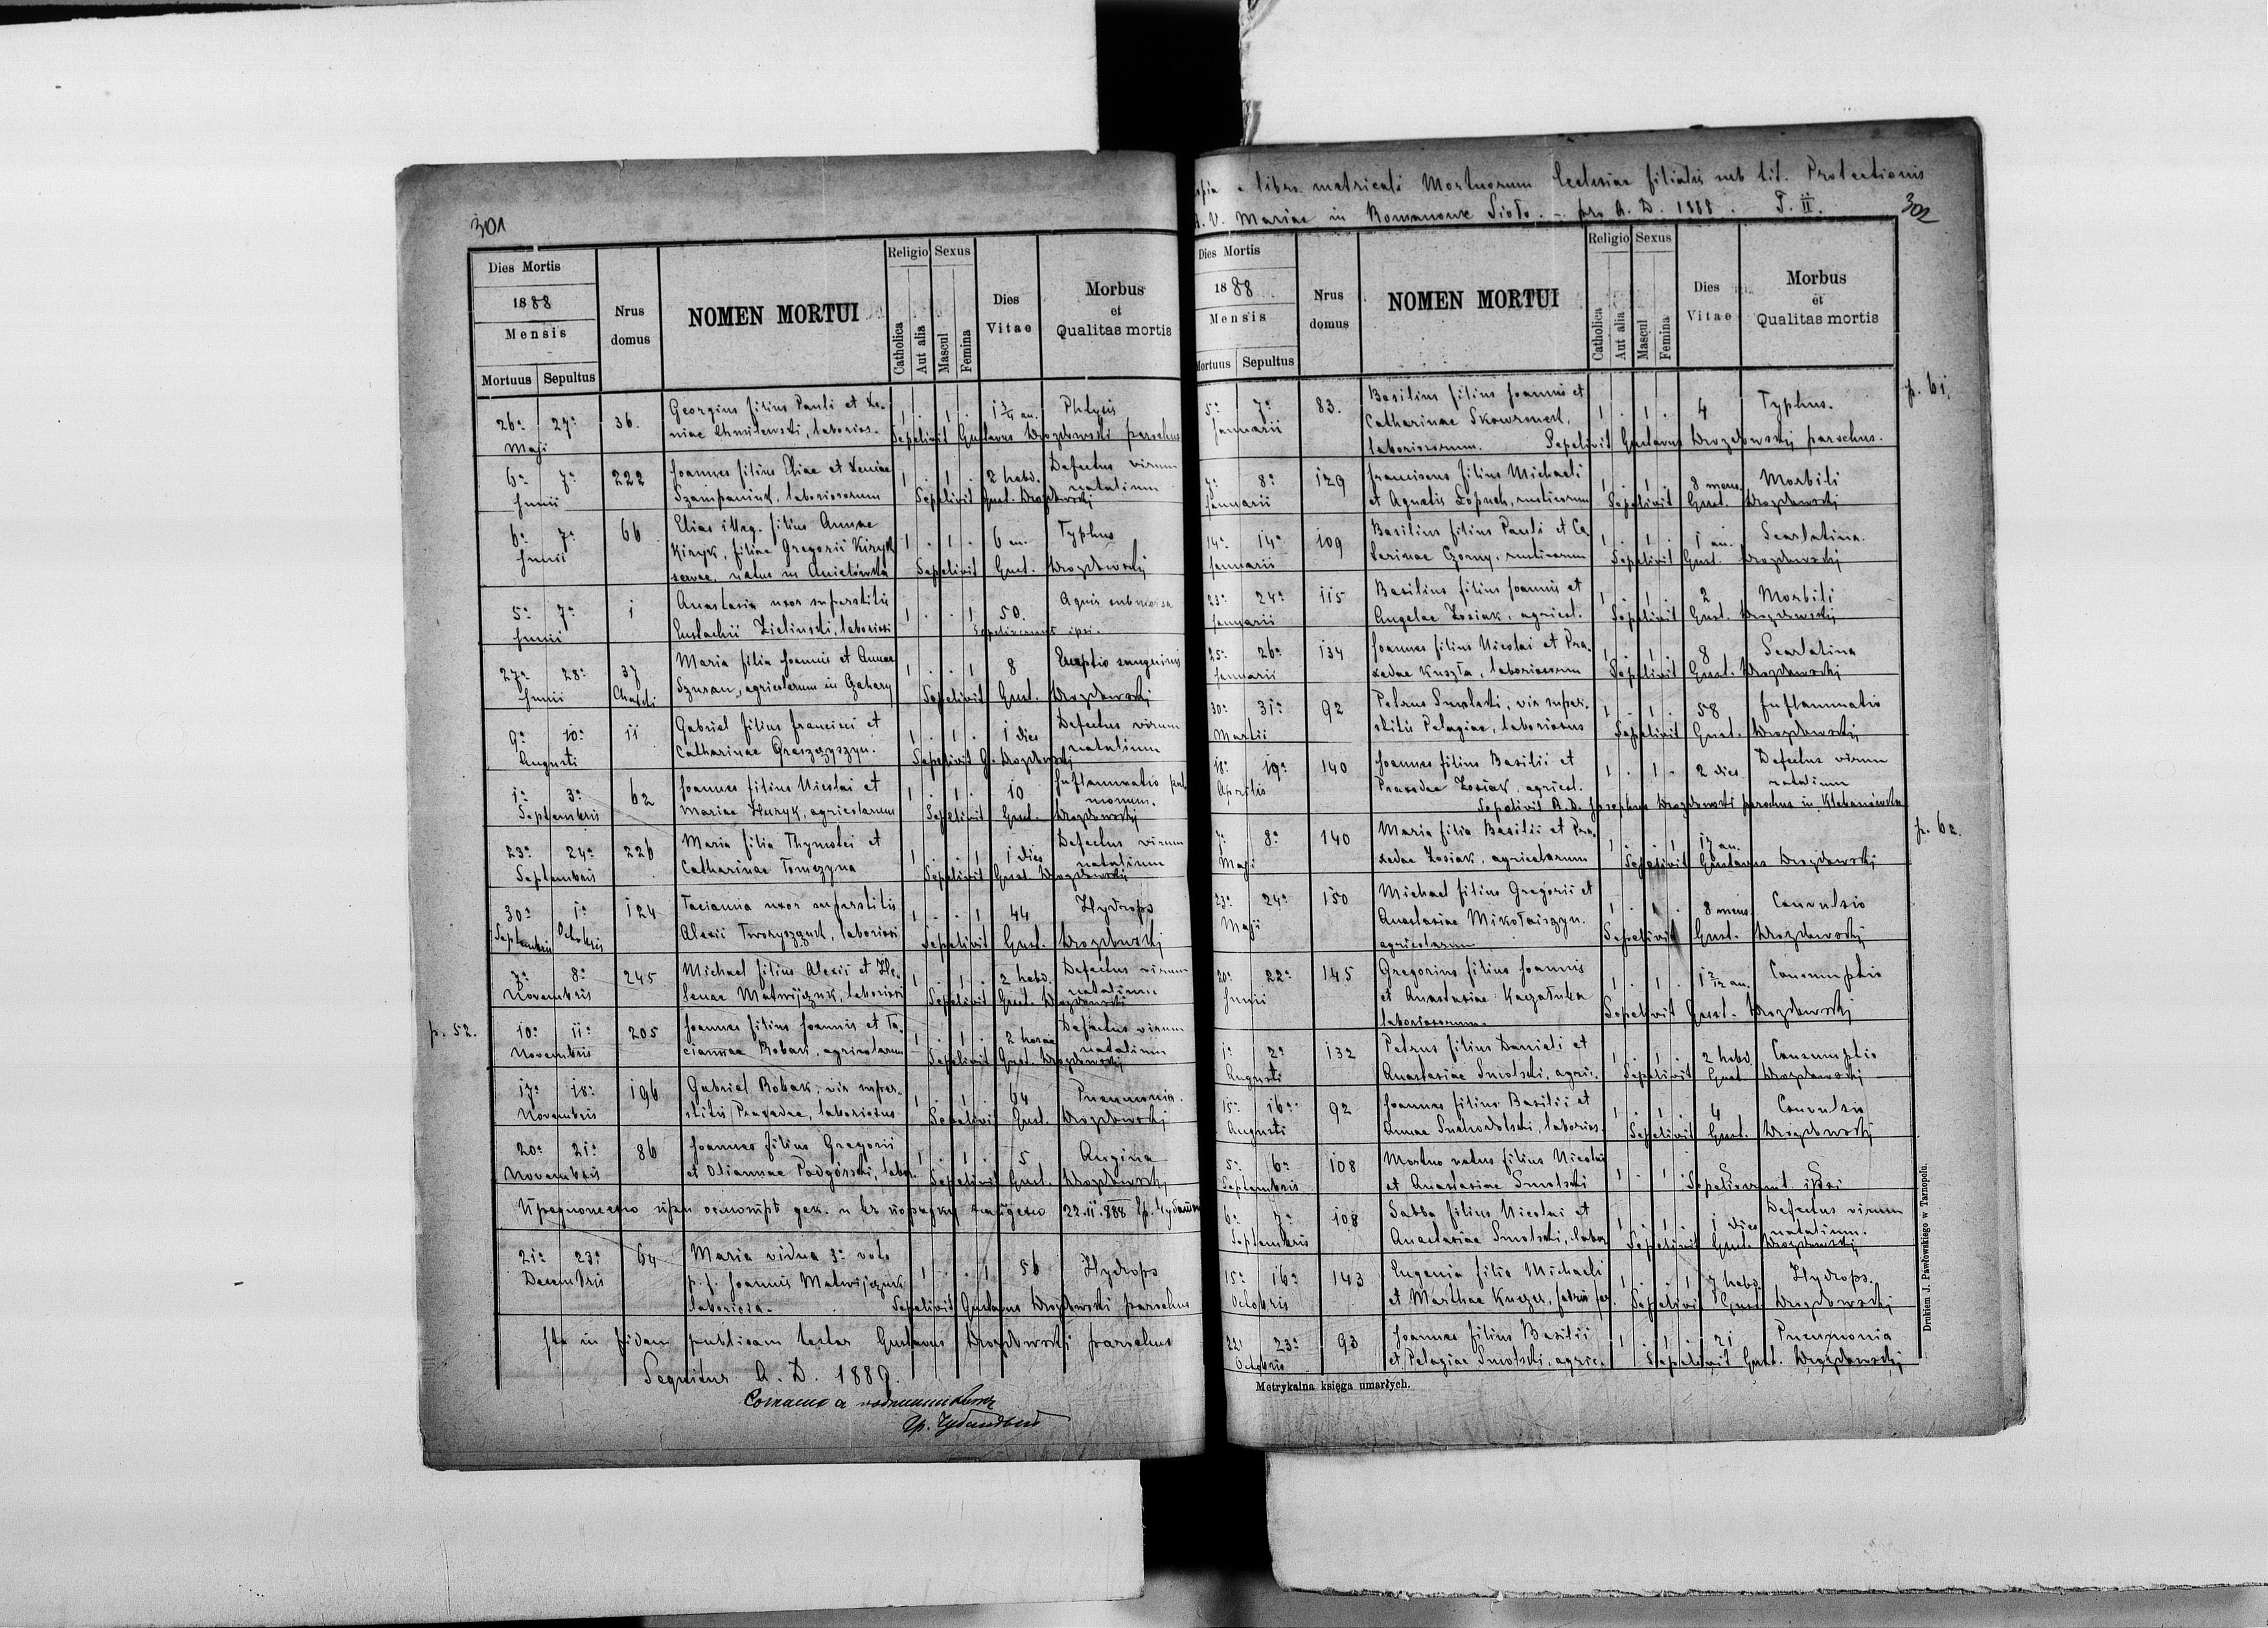 301
Dies Mortis
1888
Mensis
Mortuus Sepultus
Nrus domus
NOMEN MORTUI
Religio
Catholica
Aut alia
Sexus
Mascul
Femina
Dies Vitae
Morbus et Qualitas mortis
26a 27a 36. Georgius filius Pauli et Xe- 1 . 1 . 1 3/4 an. Phtysis
Maji niae Chmilewski, laborios. Sepelivit Gustavus Drozdowski parochus
6a 7a 222 Joannes filius Eliae et Xeniae 1 . 1 . 2 hebd. Defectus virium
Junii Szampaniuk, laboriosorum Sepelivit Gust. Drozdowski natalium
6a 7a 66 Elias illeg. filius Annae 1 . 1 . 6 m. Typhus
Junii Kiryk, filiae Gregorii Kiryk Sepelivit Gust. Drozdowskij
servae, natus in Anielówka
5a 7a 1 Anastasia uxor superstitis 1 . . 1 50. Aquis submersa
Junii Eustachii Zielinski, laboriosi Sepelierunt ipsi.
27a 28a 37 Maria filia Joannis et Annae 1 . . 1 8 Eruptio sanguinis
Junii Szuran, agricolarum in Zahary Sepelivit Gust. Drozdowskij
9a 10a 11 Gabriel filius Francisci et 1 . 1 . 1 dies Defectus virium
Augusti Catharinae Graszczyszyn. Sepelivit G. Drozdowskij natalium
1a 3a 62 Joannes filius Nicolai et 1 . 1 . 10 Inflammatio pul-
Septembris Mariae Huryk, agricolarum Sepelivit Gust. Drozdowskij monum.
23a 24a 226 Maria filia Thymotei et 1 . . 1 1 dies Defectus virium
Septembris Catharinae Tomczyna Sepelivit Gust. Drozdowskij natalium
30a 1a 124 Tacianna uxor superstitis 1 . . 1 44 Hydrops
Septembris Octobris Alexii Tworyszczuk, laboriosi Sepelivit Gust. Drozdowskij
7a 8a 245 Michael filius Alexii et He- 1 . 1 . 2 hebd. Defectus virium
Novembris lenae Matwijczuk, laboriosi Sepelivit Gust. Drozdowskij natalium
p. 52.
10a 11a 205 Joannes filius Joannis et Ta- 1 . 1 . 2 horae Defectus virium
Novembris ciannae Robak, agricolarum Sepelivit Gust. Drozdowskij natalium
17a 18a 196 Gabriel Robak, vir super- 1 . 1 . 64 Pneumonia.
Novembris stitis Praxedae, laboriosus Sepelivit Gust. Drozdowskij
20a 21a 86 Joannes filius Gregorii 1 . 1 . 5 Angina
Novembris et Oliannae Podgórski, labor. Sepelivit Gust. Drozdowskij
22.11.888
21a 23a 64 Maria vidua 3o voto 1 . . 1 56 Hydrops
Decembris p. f. Joannis Matwijczuk
laboriosa. Sepelivit Gustavus Drozdowski parochus
Ita in fidem publicam testor Gustavus Drozdowski parochus
Sequitur A. D. 1889.
Copia e libro metricali Mortuorum Ecclesiae filialis sub tit. Protectionis
B. V. Mariae in Romanowe Sioło. - pro A. D. 1888. T. II.
302
Dies Mortis
1888
Mensis
Mortuus Sepultus
Nrus domus
NOMEN MORTUI
Religio
Catholica
Aut alia
Sexus
Mascul
Femina
Dies Vitae
Morbus et Qualitas mortis
p. 61.
5a 7a 83. Basilius filius Joannis et 1 . 1 . 4 Typhus.
Januarii Catharinae Skowronek,
laboriosorum. Sepelivit Gustavus Drozdowskij parochus.
7a 8a 129 Franciscus filius Michaeli 1 . 1 . 8 mens. Morbili
Januarii et Agnetis Łopuch, rusticorum Sepelivit Gust. Drozdowskij
14a 14a 109 Basilius filius Pauli et Ca- 1 . 1 . 1 an. Scarlatina.
Januarii terinae Czorny, rusticorum Sepelivit Gust. Drozdowskij
23a 24a 115 Basilius filius Joannis et 1 . 1 . 2 Morbili
Januarii Angelae Zosiak, agricol. Sepelivit Gust. Drozdowskij
25a 26a 134 Joannes filius Nicolai et Pra- 1 . 1 . 8 Scarlatina
Januarii xedae Kuszła, laboriosorum Sepelivit Gust. Drozdowskij
30a 31a 92 Petrus Smolski, vir super- 1 . 1 . 58 Inflammatio
Martii stitis Pelagiae, laboriosus Sepelivit Gust. Drozdowskij
18a 19a 140 Joannes filius Basilii et 1 . 1 . 2 dies Defectus virium
Aprilis Praxedae Zosiak, agricol. natalium
Sepelivit A. R. Josephus Drozdowski parochus in Klebanówka
p. 62.
7a 8a 140 Maria filia Basilii et Pra- 1 . . 1 17 an.
Maji xedae Zosiak, agricolarum Sepelivit Gustavus Drozdowskij
23a 24a 150 Michael filius Gregorii et 1 . 1 . 8 mens. Convulsio
Maji Anastasiae Mikołaiszyn.
agricolarum Sepelivit Gust. Drozdowskij
20a 22a 145 Gregorius filius Joannis 1 . 1 . 1 2/12 an. Consumptio
Junii et Anastasiae Kaczałuba
laboriosorum. Sepelivit Gust. Drozdowskij
1a 2a 132 Petrus filius Danieli et 1 . 1 . 2 hebd. Consumptio
Augusti Anastasiae Smolski, agric. Sepelivit Gust. Drozdowskij
15a 16a 92 Joannes filius Basilii et 1 . 1 . 4 Convulsio
Augusti Annae Suchodolski, laborios. Sepelivit Gust. Drozdowskij
5a 6a 108 Mortuo natus filius Nicolai 1 . 1 .
Septembris et Anastasiae Smolski Sepelierunt ipsi
6a 7a 108 Sabba filius Nicolai et 1 . 1 . 1 dies Defectus virium
Septembris Anastasiae Smolski, labor. Sepelivit Gust. Drozdowskij natalium.
15a 16a 143 Eugenia filia Michaeli 1 . . 1 7 hebd. Hydrops.
Octobris et Marthae Kuczer, fabri fer. Sepelivit Gust. Drozdowskij
22a 23a 93 Joannes filius Basilii 1 . 1 . 21 Pneumonia
Octobris et Pelagiae Smolski, agric. Sepelivit Gust. Drozdowskij
Metrykalna księga umarłych.
Drukiem J. Pawłowskiego w Tarnopolu.